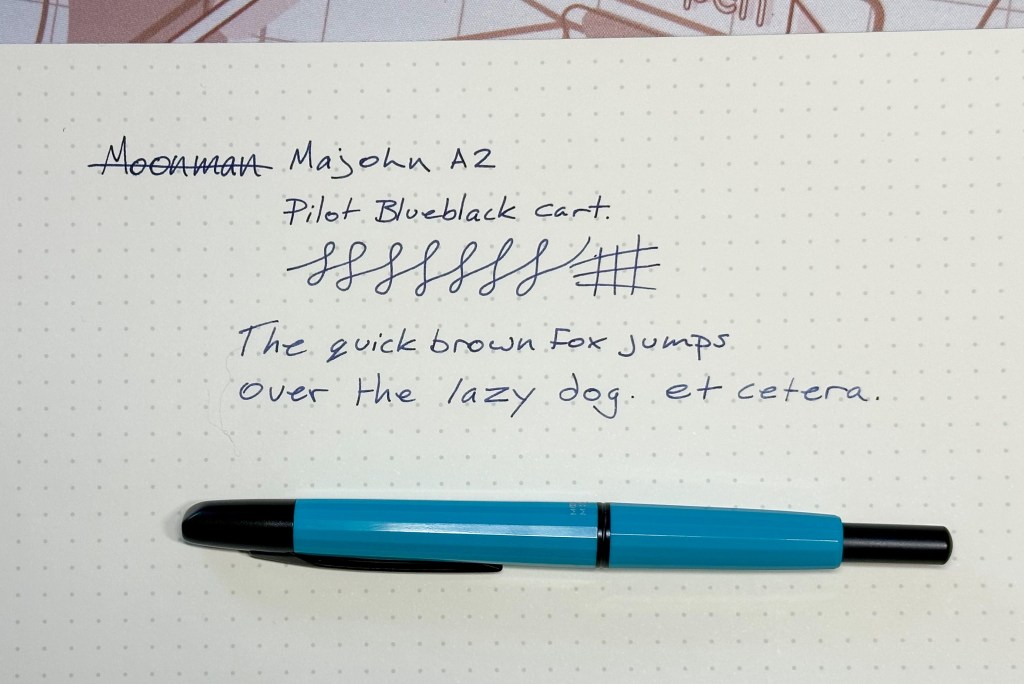 pen
Moonman Majohn A2
Pilot Blueblack cart.
The quick brown Fox jumps
over the lazy dog. et cetera.